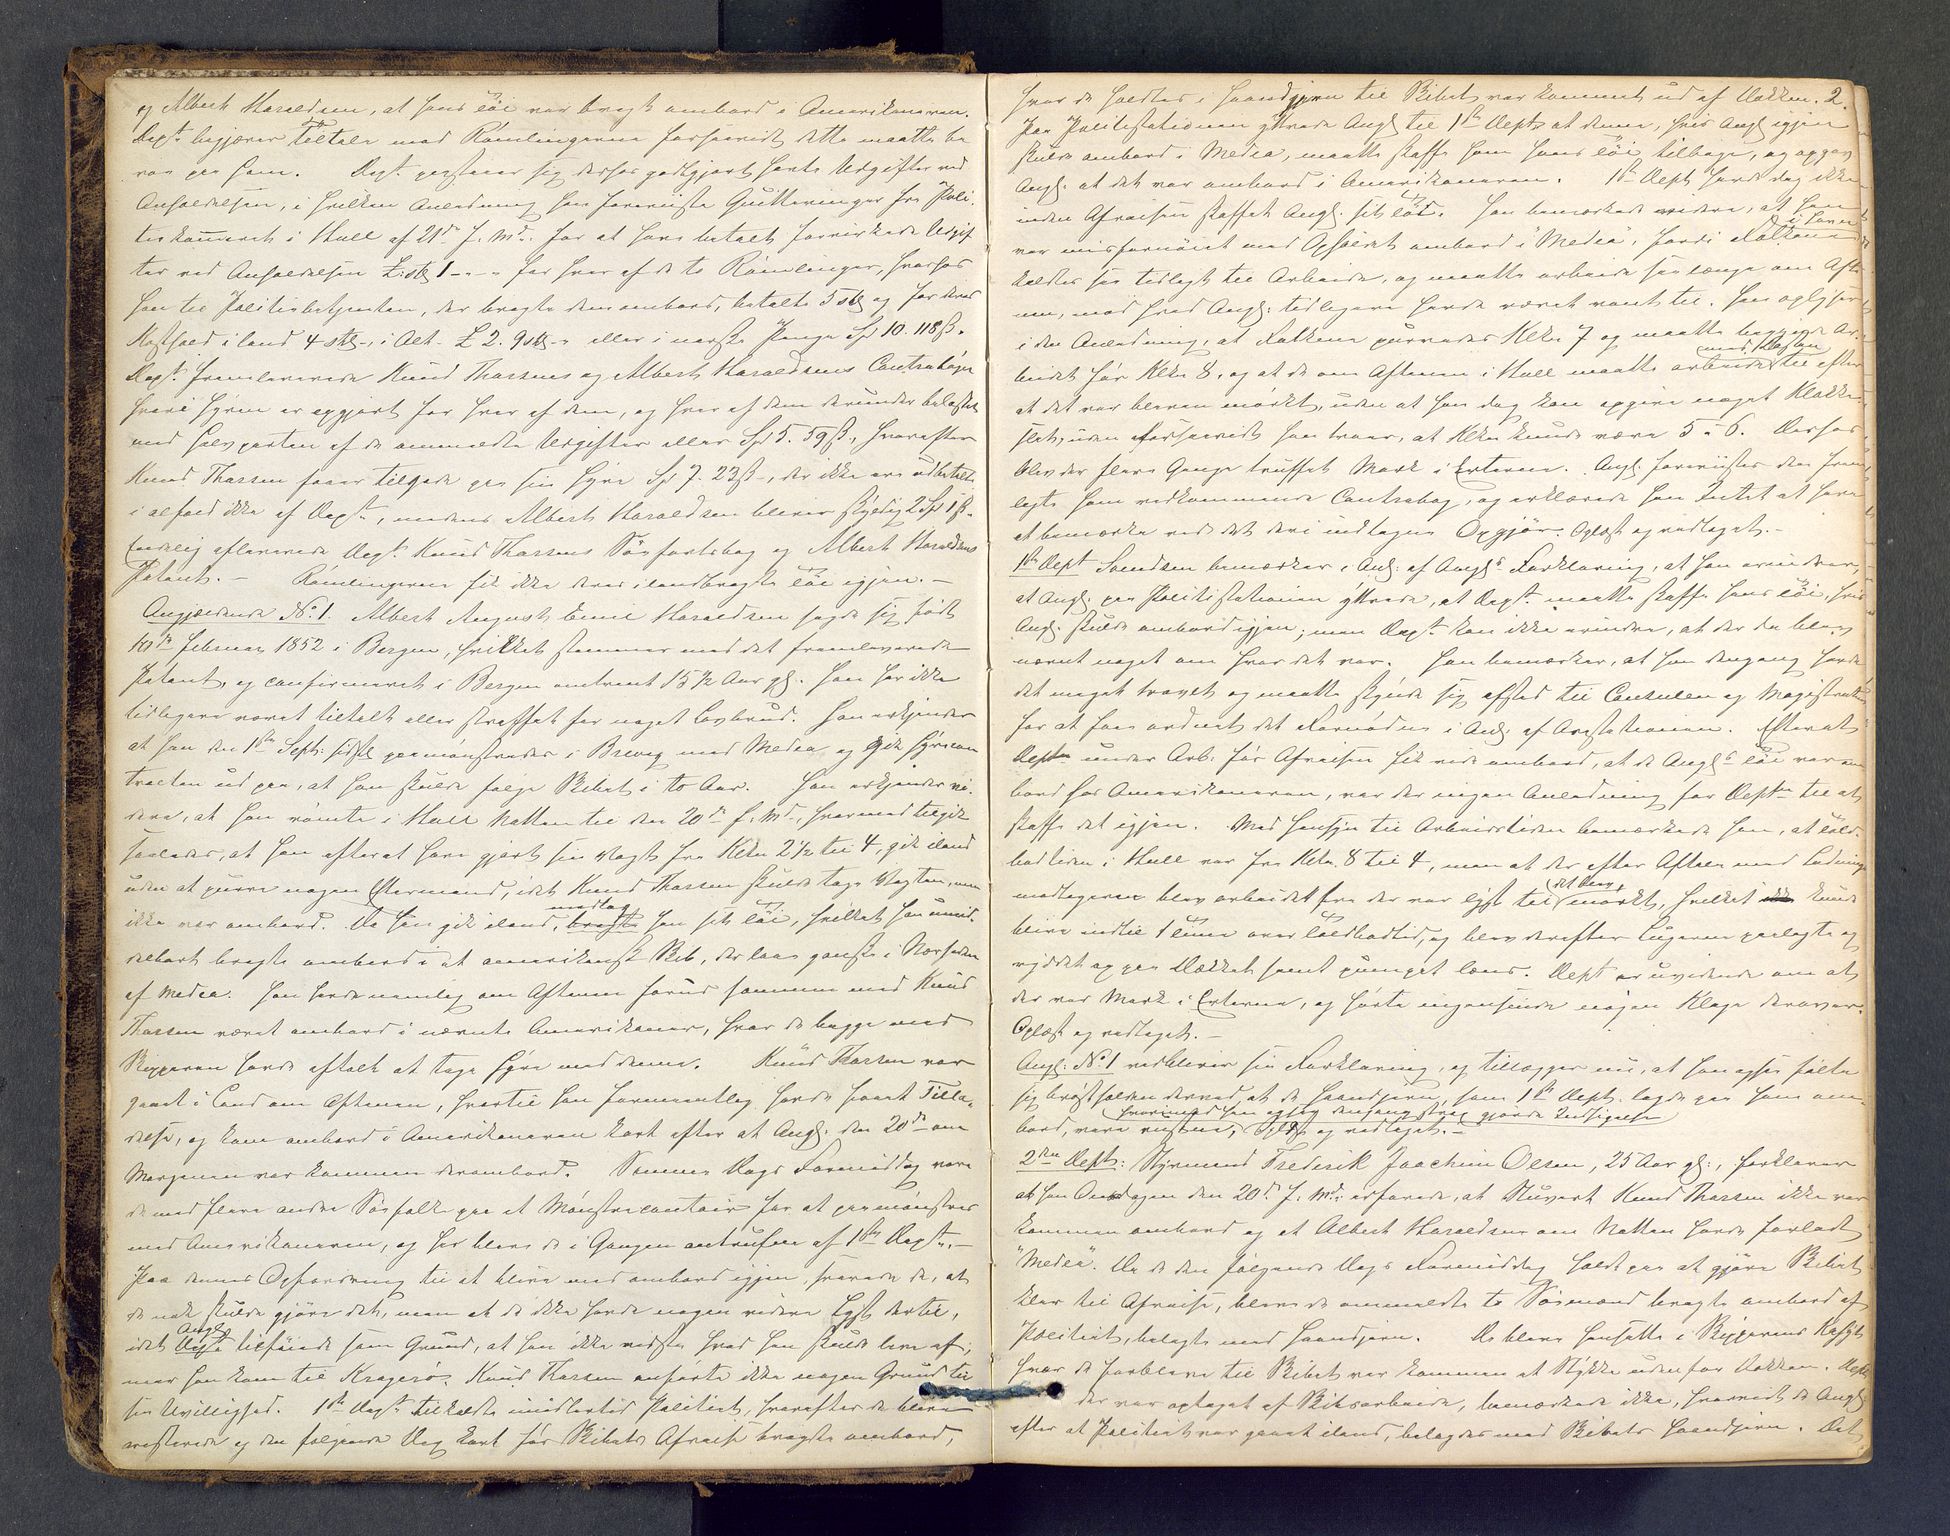 og Albert Haraldsen, at hans Töi var bragt ombord i Amerikaneren.
Dept. begjærer Tiltale mod Römlingerne forsaavidt dette maatte be
roe paa ham. Dept. paastaar sig derhos godtgjort havte Udgifter ved
Anholdelsen, i hvilken Anledning han foreviste Qvitteringer fra Poli-
tikammeret i Hull af 21de f. Md. for at have betalt forvirkede Udgif
ter ved Anholdelsen £ stg 1 - - - for hver af de to Römlinger, hvorhos
han til Politibetjenten, der bragte dem ombord, betalte 5 stg og for deres
Kosthold i land 4 stg, i Alt £ 2. 9 stg - eller i norske Penge Sp 10. 118 ß.
Dept. fremleverede Knud Thorsens og Albert Haraldsens Contrabøger
hvori Hyren er opgjort for hver af dem, og hver af dem derunder belastet
med Halvparten af de ommeldte Udgifter eller Sp 5. 59 ß, hvorefter
Knud Thorsen faaer tilgode paa sin Hyre Sp 7. 23 ß, der ikke ere udbetalt
i alfald ikke af Dept., medens Albert Haraldsen bliver skyldig 2 Sp 1 ß.
Endelig afleverede Dept. Knud Thorsens Söfartsbog og Albert Haraldsens
Patent. - Römlingerne fik ikke deres ilandbragte Töi igjen. -
Angjældende No. 1. Albert August Emil Haraldsen sagde sig født
10de Februar 1852 i Bergen, hvilket stemmer med det fremleverede
Patent, og confirmeret i Bergen omtrent 15 1/2 Aar gl. Han har ikke
tidligere været tiltalt eller straffet for noget Lovbrud. Han erkjender
at han den 1ste Septr. sidstl paamönstredes i Brevig med Medea, og gik Hyrecon
tracten ud paa, at han skulde følge Skibet i to Aar. Han erkjender vi-
dere, at han römte i Hull Natten til den 20de f. Md., hvormed tilgik
saaledes, at han efterat have gjort sin Vagt fra Klkn 2 1/2 til 4, gik iland
uden at purre nogen Eftermand, idet Knud Thorsen skulde tage Vagten, men
ikke var ombord. Da han gik iland, bragte medtog han sit Töi, hvilket han umid-
delbart bragte ombord i et amerikansk Skib, der laae ganske i Nærheden
af Medea. Han havde nemlig om Aftenen forud sammen med Knud
Thorsen været ombord i nævnte Amerikaner, hvor de begge med
Skipperen havde aftalt at tage Hyre med denne. Knud Thorsen var
gaaet i Land om Aftenen, hvortil han formeentlig havde faaet Tilla-
delse, og kom ombord i Amerikaneren kort efter at Angl. den 20de om
Morgenen var kommen derombord. Samme Dags Formiddag vare
de med flere andre Söfolk paa et Mönstrecontoir for at paamönstres
med Amerikaneren, og her bleve de i Gangen antrufne af 1ste Dept. -
Paa dennes Opfordring til at blive med ombord igjen, svarede de, at
de nok skulde gjöre det, men at de ikke havde nogen videre Lyst dertil,
idet Dept Angl tilföiede som Grund, at han ikke vidste hvad han skulde leve af,
naar han kom til Kragerö. Knud Thorsen anførte ikke nogen Grund til
sin Uvillighed. 1ste Dept. tilkaldte imidlertid Politiet, hvorefter de bleve
arresterede og den følgende Dag kort før Skibets Afreise bragte ombord,
2.
hvor de holdtes i Haandjern til Skibet var kommet ud af Dokken.
Paa Politistationen yttrede Angl til 1ste Dept at denne, hvis Angl igjen
skulde ombord i Medea, maatte skaffe ham hans Töi tilbage, og opgav
Angl. at det var ombord i Amerikaneren. 1ste Dept havde dog ikke
inden Afreisen skaffet Angl. sit Töi. Han bemærkede videre, at han
var misfornöiet med Opholdet ombord i "Medea", fordi Folkene i Havn
kaldtes for tidligt til Arbeide, og maatte arbeide for længe om Afte
nen, mod hvad Angl. tidligere havde været vant til. Han oplyser
i den Anledning, at Folkene purredes Klkn 7 og maatte begynde Ar-
beidet før Klkn 8, og at de om Aftenen i Hull maatte arbeide med Lasten til efter
at det var bleven mörkt, uden at han dog kan opgive noget Klokke
slet, uden forsaavidt han troer, at Klkn kunde være 5 a 6. Derhos
blev der flere Gange truffet Mark i Erterne. Angl. forevistes den frem
lagte ham vedkommende Contrabog, og erklærede han Intet at have
at bemærke ved det deri indtagne Opgjör. Oplæst og vedtaget. -
1ste Dept Svendsen bemærker i Anl. af Angls Forklaring, at han erindrer,
at Angl. paa Politistationen yttrede, at Dept. maatte skaffe hans Töi, hvis
Angl. skulde ombord igjen; men Dept. kan ikke erindre, at der da blev
nævnt noget om hvor det var. Han bemærker, at han dengang havde
det meget travlt og maatte skynde sig afsted til Consulen og Magistraten
for at faae ordnet det Fornödne i Anl. af Arrestationen. Efterat
Dept under Arb. för Afreisen fik vide ombord, at de Angls Töi var om
bord hos Amerikaneren, var der ingen Anledning for Depten til at
skaffe det igjen. Med Hensyn til Arbeidstiden bemærkede han, at Told-
bodtiden i Hull var fra Klkn. 8 til 4, men at der efter Aftale med Ladnings-
modtageren blev arbeidet fra der var lyst til det blev mörkt, hvilket ikke kunde
blive indtil 1 Time over Toldbodtid, og blev derefter Lugerne paalagte og
ryddet op paa Dækket samt pumpet læns. Dept er uvidende om at
der var Mark i Erterne, og hørte ingensinde nogen Klage derover.
Oplæst og vedtaget. -
Angl. No. 1 vedbliver sin Forklaring, og tillægger nu, at han ogsaa følte
sig bröstholden derved, at de Haandjern, som 1ste Dept. lagde paa ham om-
bord, vare rustne, hvorimod han og sig dengang strax gjorde Indsigelse Oplæst og vedtaget. -
2den Dept: Styrmand Frederik Joachim Olsen, 25 Aar gl., forklarer
at han Onsdagen den 20de f. Md. erfarede, at Stuvert Knud Thorsen ikke var
kommen ombord og at Albert Haraldsen om Natten havde forladt
"Medea". Da de den følgende Dags Formiddag holdt paa at gjöre Skibet
klar til Afreise, bleve de ommeldte to Sömænd bragte ombord af
Politiet, belagte med Haandjern. De bleve hensatte i Skipperens Kahyt
hvor de forbleve til Skibet var kommen et Stykke udenfor Dokken. Dept,
der var optaget af Skibsarbeide, bemærkede ikke, hvorvidt de Angl
efter at Politiet var gaaet iland, belagdes med Skibets Haandjern. Det